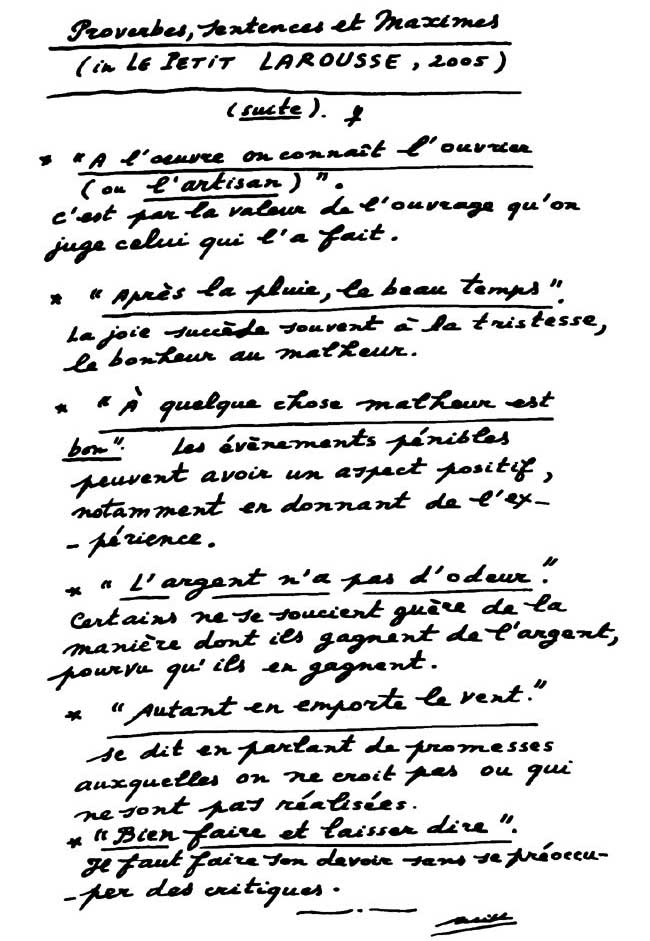 Proverbes, sentences et Maximes
(in LE PETIT LAROUSSE, 2005)
(suite).
* "A l'œuvre on connaît l'ouvrier
(ou l'artisan)".
c'est par la valeur de l'ouvrage qu'on
juge celui qui l'a fait.
* "Après la pluie, le beau temps".
La joie succède souvent à la tristesse,
le bonheur au malheur.
* "À quelque chose malheur est
bon". Les évènements pénibles
peuvent avoir un aspect positif,
notamment en donnant de l'ex-
-périence.
* "L'argent n'a pas d'odeur".
Certains ne se soucient guère de la
manière dont ils gagnent de l'argent,
pourvu qu'ils en gagnent.
* "Autant en emporte le vent."
se dit en parlant de promesses
auxquelles on ne croit pas ou qui
ne sont pas réalisées.
* "Bien faire et laisser dire".
Il faut faire son devoir sans se préoccu-
-per des critiques.